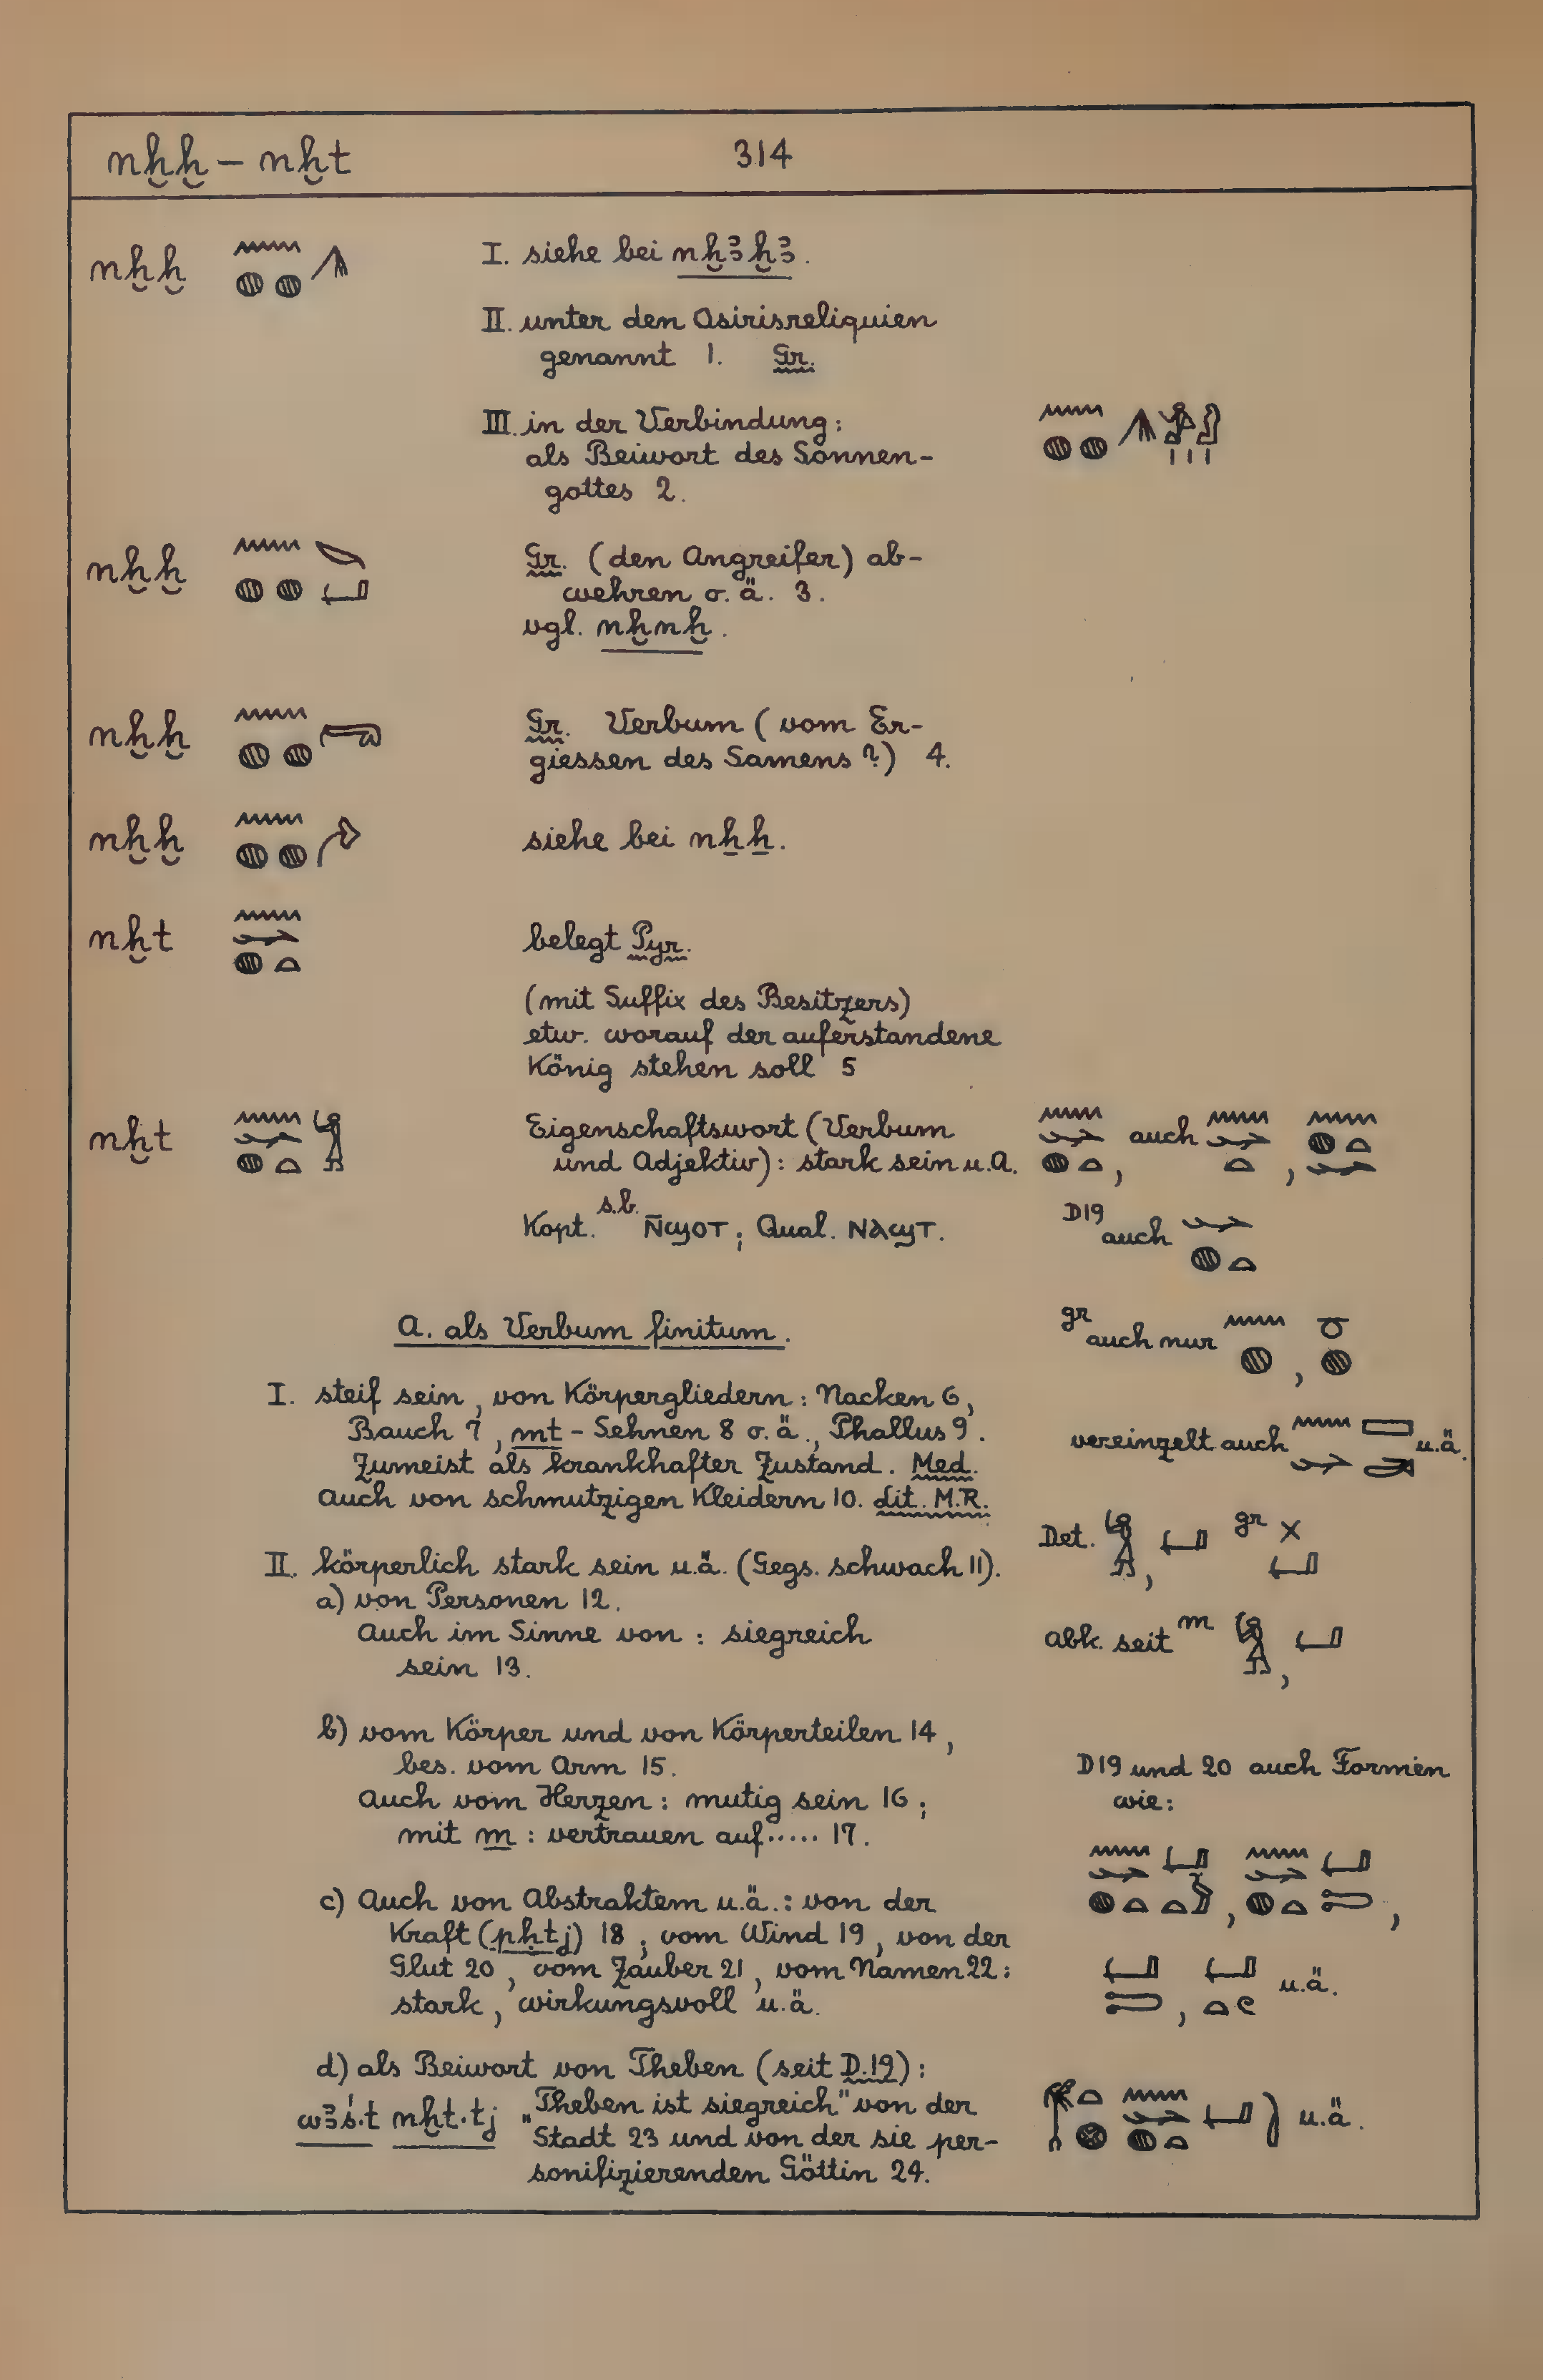 nḫḫ – nḫt 314
nḫḫ 𓈖𓐍𓐍𓇶 I. siehe bei nḫꜣḫꜣ.
II. unter den Osirisreliquien
genannt 1. Gr.
III. in der Verbindung:
als Beiwort des Sonnen-
gottes 2.
nḫḫ Gr. (den Angreifer) ab-
wehren o.ä. 3.
vgl. nḫnḫ.
nḫḫ Gr. Verbum (vom Er-
giessen des Samens?) 4.
nḫḫ siehe bei nẖẖ.
nḫt belegt Pyr.
(mit Suffix des Besitzers)
etw. worauf der auferstandene
König stehen soll 5
nḫt Eigenschaftswort (Verbum auch
und Adjektiv): stark sein u.A.
Kopt. s.b. N̄ϢΟΤ; Qual. ΝΑϢΤ.
D19 auch
A. als Verbum finitum.
gr auch nur
I. steif sein, von Körpergliedern: Nacken 6,
Bauch 7, mt-Sehnen 8 o.ä., Phallus 9.
Zumeist als krankhafter Zustand. Med.
Auch von schmutzigen Kleidern 10. Lit. M.R.
vereinzelt auch u.ä.
Det. gr
II. körperlich stark sein u.ä. (Gegs. schwach 11).
a) von Personen 12.
Auch im Sinne von: siegreich
sein 13.
Abk. seit m
b) vom Körper und von Körperteilen 14,
bes. vom Arm 15.
Auch vom Herzen: mutig sein 16;
mit m: vertrauen auf..... 17.
D19 und 20 auch Formen
wie:
c) Auch von Abstraktem u.ä.: von der
Kraft (pḥtj) 18; vom Wind 19, von der
Glut 20, vom Zauber 21, vom Namen 22:
stark, wirkungsvoll u.ä.
u.ä.
d) als Beiwort von Theben (seit D.19):
wꜣś.t nḫt.tj „Theben ist siegreich" von der u.ä.
Stadt 23 und von der sie per-
sonifizierenden Göttin 24.